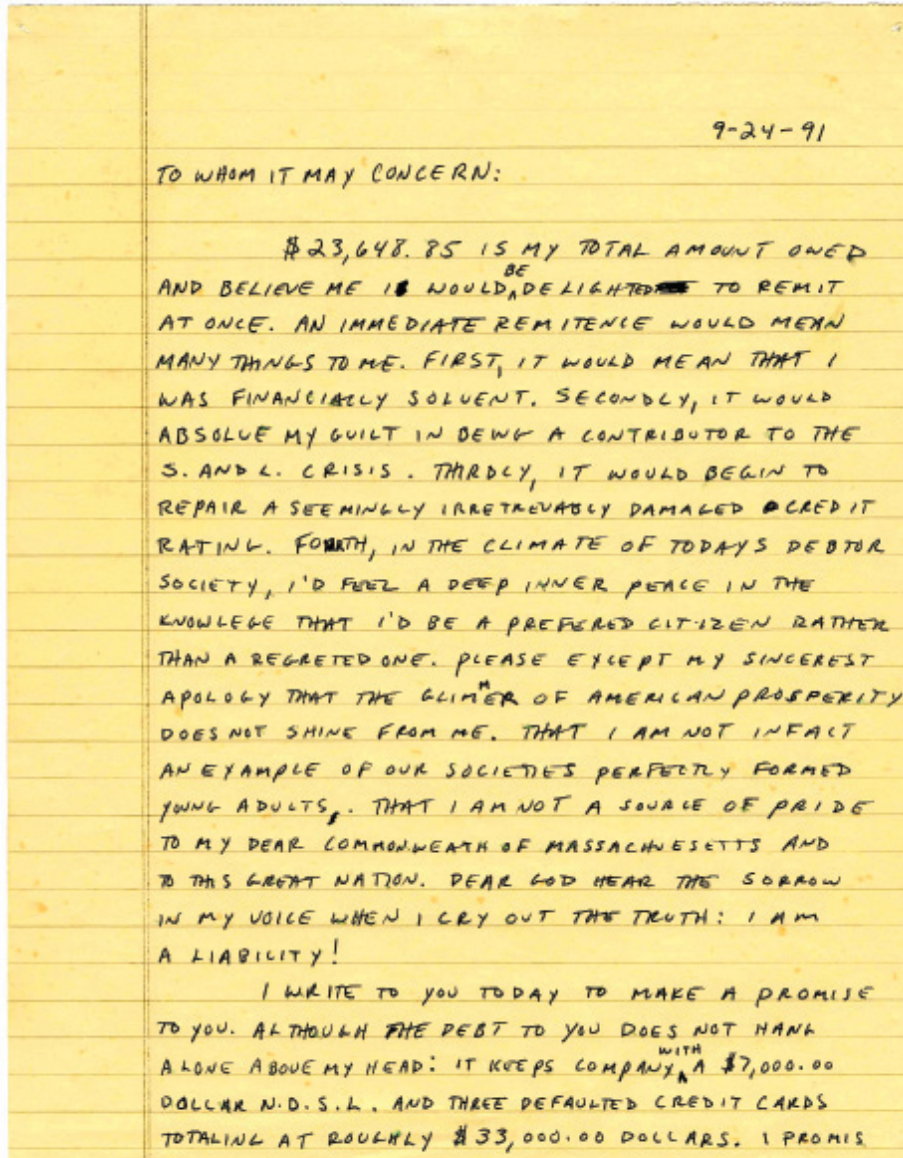 9-24-91
TO WHOM IT MAY CONCERN:
$23,648.85 IS MY TOTAL AMOUNT OWED
AND BELIEVE ME I WOULD BE DELIGHTED TO REMIT
AT ONCE. AN IMMEDIATE REMITENCE WOULD MEAN
MANY THINGS TO ME. FIRST, IT WOULD MEAN THAT I
WAS FINANCIALLY SOLVENT. SECONDLY, IT WOULD
ABSOLVE MY GUILT IN BEING A CONTRIBUTOR TO THE
S. AND L. CRISIS. THIRDLY, IT WOULD BEGIN TO
REPAIR A SEEMINGLY IRRETREVABLY DAMAGED CREDIT
RATING. FOURTH, IN THE CLIMATE OF TODAYS DEBTOR
SOCIETY, I'D FEEL A DEEP INNER PEACE IN THE
KNOWLEGE THAT I'D BE A PREFERED CITIZEN RATHER
THAN A REGRETED ONE. PLEASE EXCEPT MY SINCEREST
APOLOGY THAT THE GLIMMER OF AMERICAN PROSPERITY
DOES NOT SHINE FROM ME. THAT I AM NOT INFACT
AN EXAMPLE OF OUR SOCIETIES PERFECTLY FORMED
YOUNG ADULTS,. THAT I AM NOT A SOURCE OF PRIDE
TO MY DEAR COMMONWEATH OF MASSACHUESETTS AND
TO THIS GREAT NATION. DEAR GOD HEAR THE SORROW
IN MY VOICE WHEN I CRY OUT THE TRUTH: I AM
A LIABILITY!
I WRITE TO YOU TODAY TO MAKE A PROMISE
TO YOU. ALTHOUGH THE DEBT TO YOU DOES NOT HANG
ALONE ABOVE MY HEAD: IT KEEPS COMPANY WITH A $7,000.00
DOLLAR N.D.S.L. AND THREE DEFAULTED CREDIT CARDS
TOTALING AT ROUGHLY $33,000.00 DOLLARS. I PROMIS